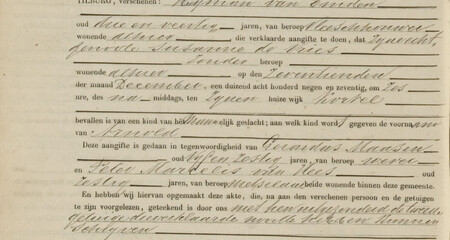 TILBURG, verschenen: Heijman van Emden
oud twee en veertig jaren, van beroep Vleeschhouwer
wonende alhier die verklaarde aangifte te doen, dat Zijne echt,
genoote Susanna de Vries
Zonder beroep
wonende alhier op den Zeventienden
der maand December een duizend acht honderd negen en zeventig, om Zes
ure, des na middags, ten Zijnen huize wijk Korvel
bevallen is van een kind van het Mannelijk geslacht; aan welk kind wordt gegeven de voornaam
van Arnold
Deze aangifte is gedaan in tegenwoordigheid van Gerardus Maassen
oud Vijf en Zestig jaren, van beroep wever
en Peter Marcelis van Hees oud
Zestig jaren, van beroep beide wonende binnen deze gemeente.
En hebben wij hiervan opgemaakt deze akte, die, na aan den verschenen persoon en de getuigen
te zijn voorgelezen, geteekend is door ons met hem uitgezonderd de twee
getuigen die verklaarde niet te kunnen
schrijven